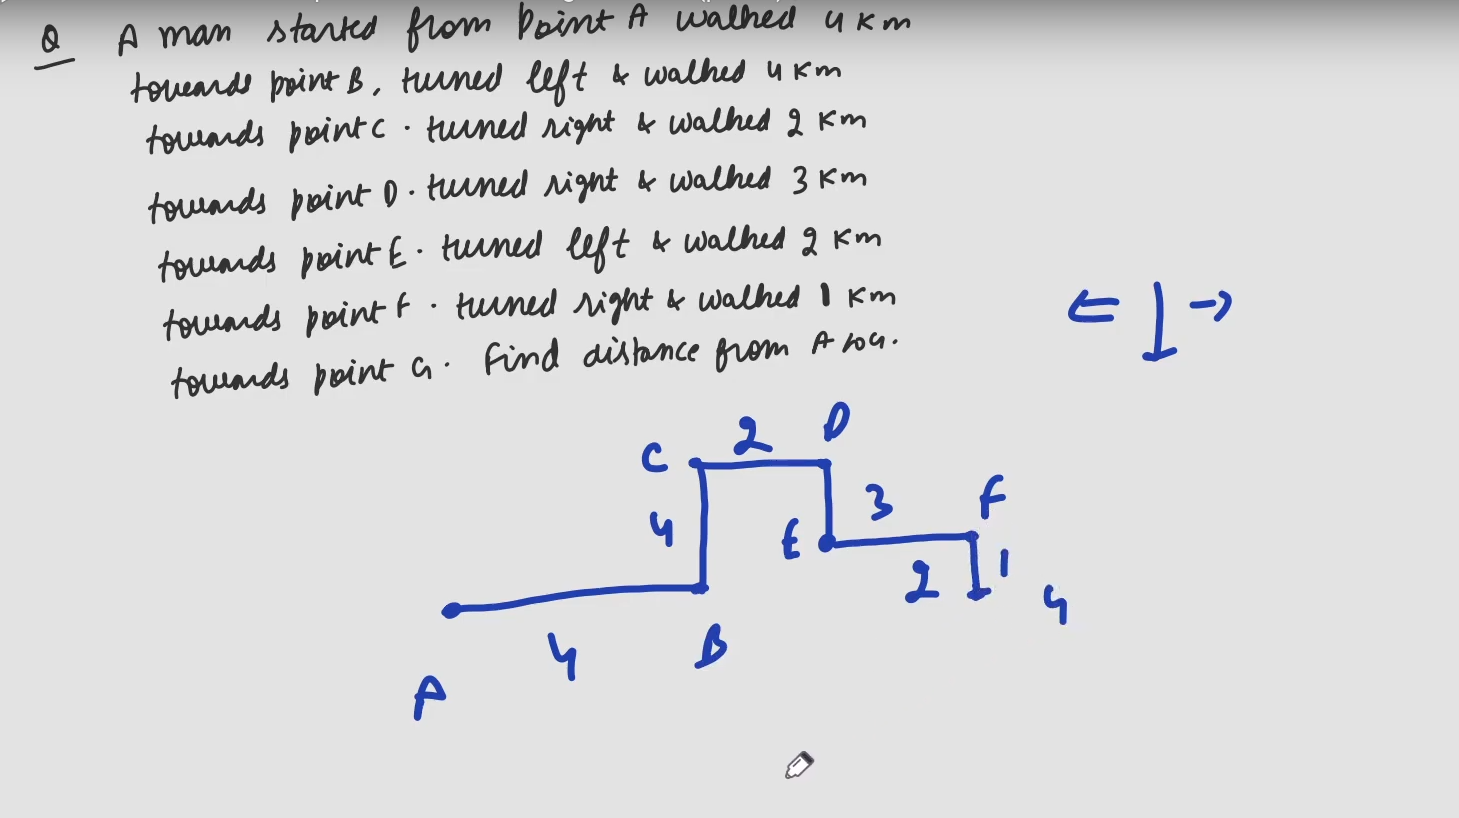 Q A man started from Point A walked 4 Km
towards point B, turned left & walked 4 Km
towards point C. turned right & walked 2 Km
towards point D. turned right & walked 3 Km
towards point E. turned left & walked 2 Km
towards point F. turned right & walked 1 Km
towards point G. Find distance from A to G.
C 2 D
4 E 3 F
2 1 G
4 B
A